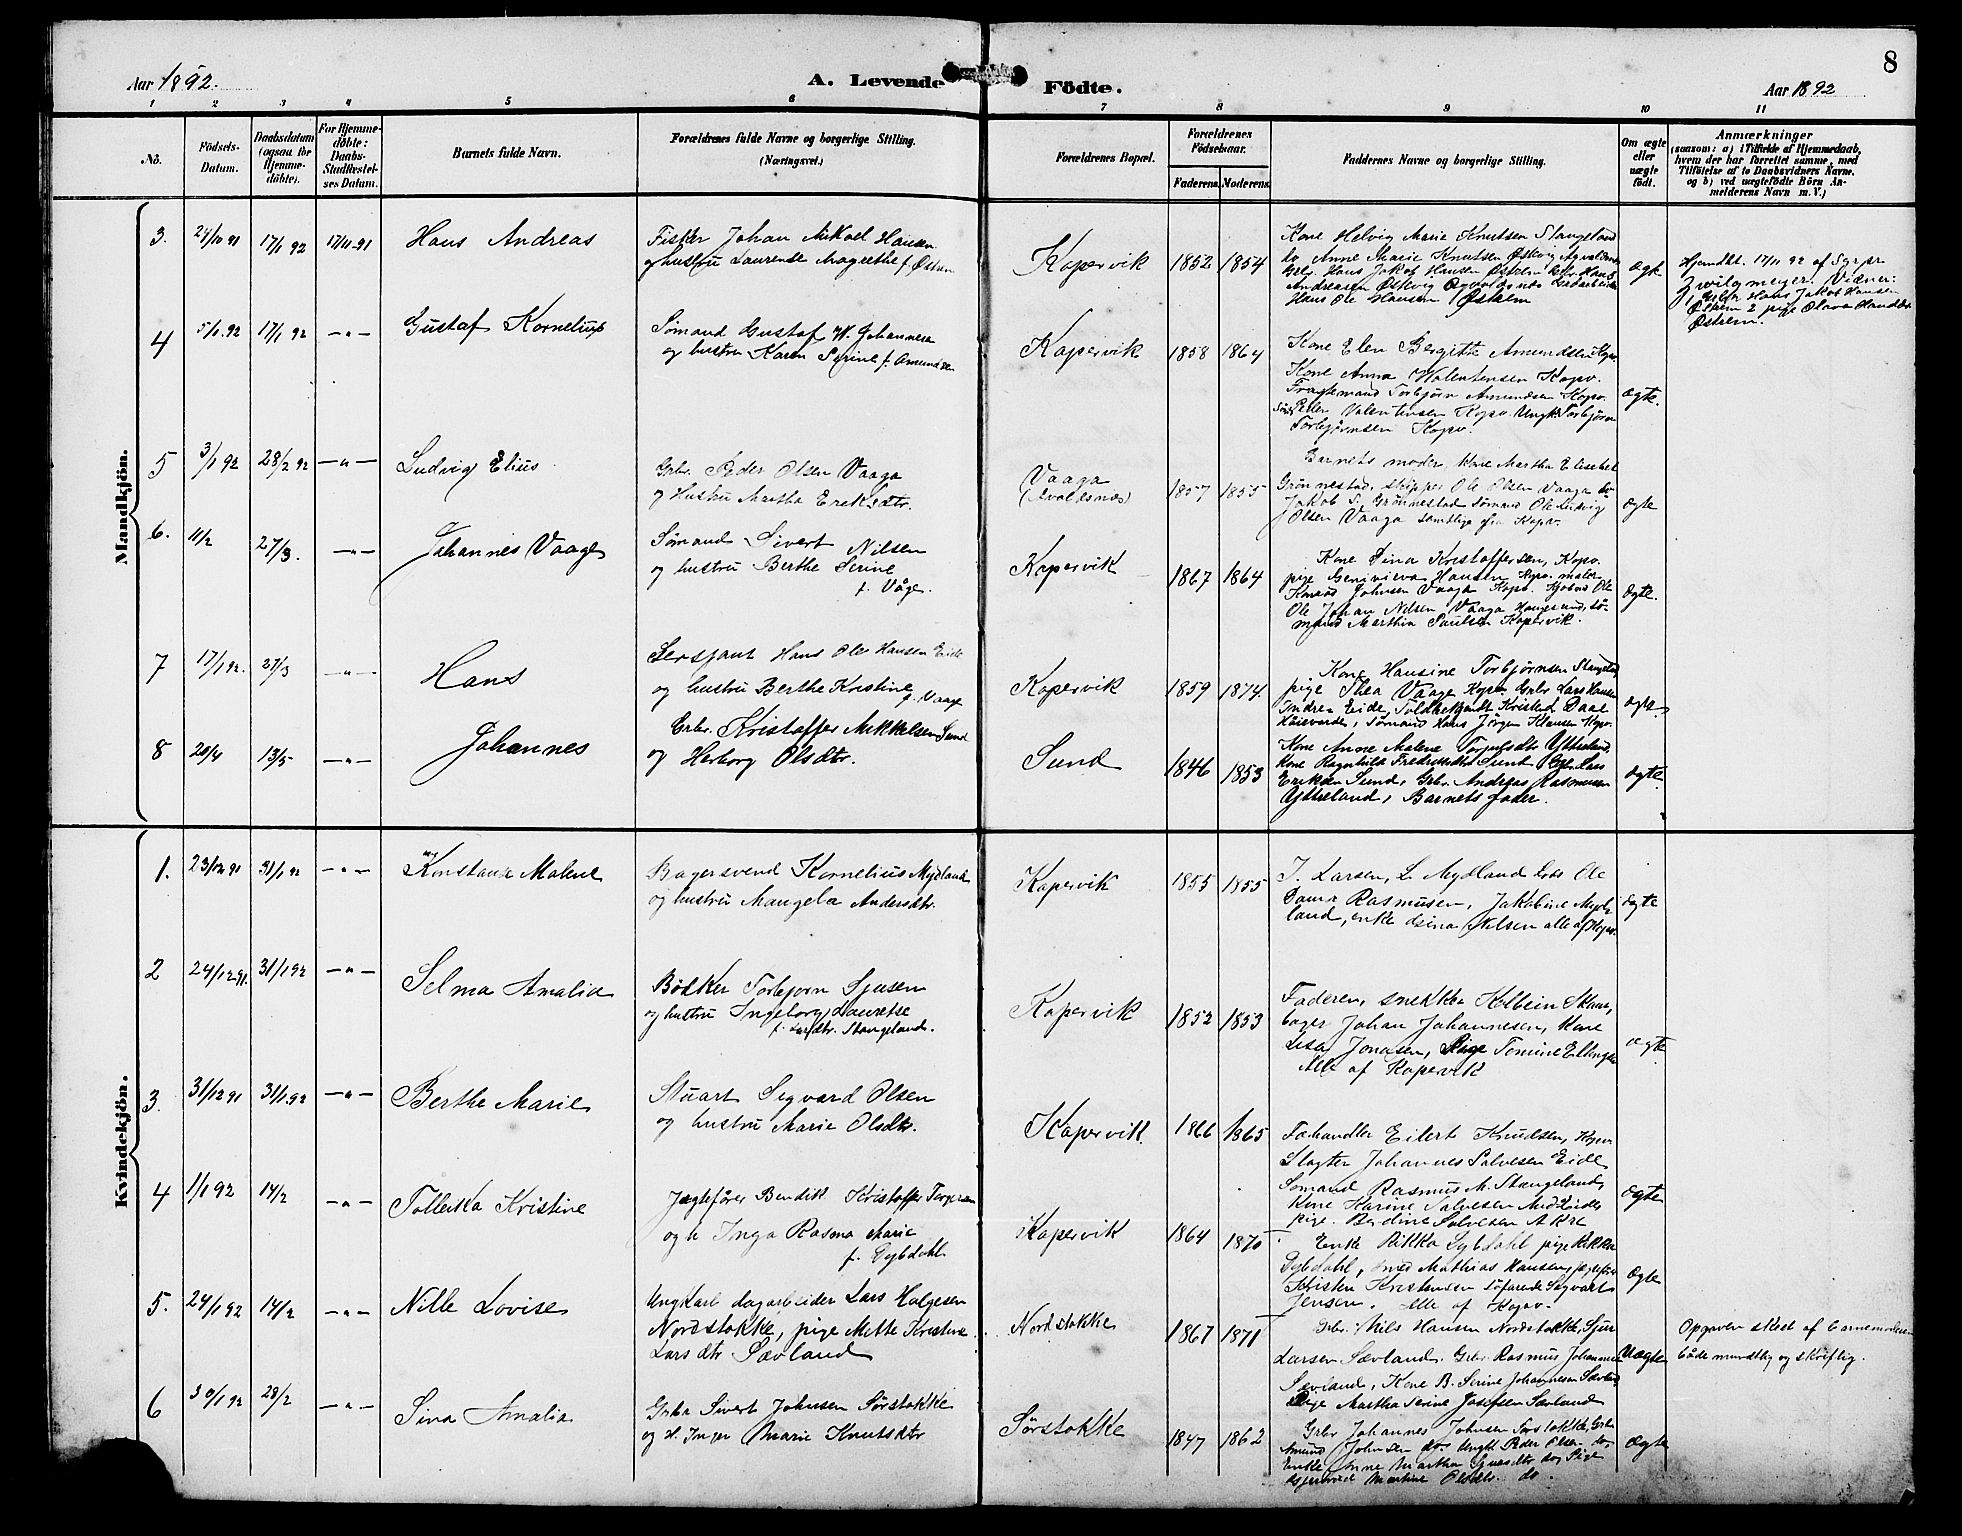 Aar 1892.
A. Levende Födte.
Aar 1892
8
1 2 3 4 5 6 7 8 9 10 11
No.
Födsels-Datum.
Daabsdatum (ogsaa for Hjemme-döbte).
For Hjemme-döbte: Daabs-Stadfæstel-ses Datum.
Barnets fulde Navn.
Forældrenes fulde Navne og borgerlige Stilling. (Næringsvei.)
Forældrenes Bopæl.
Forældrenes Födselsaar.
Faderens. Moderens.
Faddernes Navne og borgerlige Stilling.
Om ægte eller uægte födt.
Anmærkninger
(saasom: a) i Tilfælde af Hjemmedaab, hvem der har forrettet samme, med Tilföielse af to Daabsvidners Navne, og b) ved uægtefödte Börn An-melderens Navn m. V.)
Mandkjön.
3. 24/10 91 17/1 92 17/11 91 Hans Andreas
Fisker Johan Mikael Hansen
og hustru Laurense Magrethe f. Østrem
Kopervik 1852 1854
Kone Helvig Marie Knutsen Stangeland
do Anne Marie Knutsen Østevig Agvaldsnes
Grbr. Hans Jakob Hansen Østrem Grbr. Hans
Andreasen Østevig
Hans Ole Hansen Østrem
Ægte
Hjemdbt. 17/11 92 af Sgpr
Zwilgmeyer. Vidner:
1, Grbr Hans Jakob Hansen
Østrem 2 pige Olava
Østrem.
4 5/1.92 17/1 92 -"- Gustaf Kornelius
Sømand Gustaf W. Johannesen
og hustru Karen Serine f. Amundsen
Kopervik 1858 1864
Kone Elen Bergitte Amundsen Kopv.
Kone Anna Walentensen Kopv.
Fragtemand Torbjørn Amundsen Kopv.
Peder Valentinsen Kopv. Ungk. Torbjørn
Torbjørnsen Kopv.
Ægte.
5 3/1 92 28/2 92 -"- Ludvig Elius
Grbr. Peder Olsen Vaaga
og Hustru Martha Eriksdtr.
Vaaga
(Avaldsnæs)
1857 1855
Barnets moder, Kone Martha Elisebet
Grønnestad, skipper Ole Olsen Vaaga do
Jakob S. Grønnestad Sømand Ole Ludvig
Olsen Vaaga samtlige fra Kopv.
Ægte
6. 11/2 27/3. -"- Johannes Vaage
Sømand Sivert Nilsen
og hustru Berthe Serine
f. Våge.
Kopervik 1867 1864
Kone Sina Kristoffersen, Kopv.
pige Genivieva Hansen Kopv. maler
Konrad Johnsen Vaaga Kopv. Ole
Ole Johan Nilsen Vaaga Haugesund, sø-
mand Marthin Paulsen Kopervik.
Ægte.
7 17/1 92. 27/3 -"- Hans
Sersjant Hans Ole Hansen Eide
og hustru Berthe Kristine f. Vaage
Kopervik 1859 1874
Kone Hansine Torbjørnsen Stangeland
pige Thea Vaage Kopv. Grbr Lars Hansen
Indre Eide, Toldbetjendt Kristed Daal
Høievarde, Sømand Hans Jørgen Klausen Kopv.
Ægte.
8 20/4 13/5 -"- Johannes
Grbr. Kristoffer Mikkelsen Sund
og Herborg Olsdtr.
Sund 1846 1853
Kone Anne Malene Torjusdtr Ytreland
Kone Ragnhild Fredriksdtr Sund Grbr. Lars
Eriksen Sund, Grbr. Andreas Rasmusen
Ytreland, Barnets fader.
Ægte.
Kvindekjön.
1. 23/12 91 31/1 92 -"- Konstanse Malene
Bagersvend Kornelius Mydland
og hustru Mangela Andersdtr.
Kopervik 1855 1855
J. Larsen, L. Mydland Lods Ole
Rasmusen, Jakobine Myd-
land, enke Nilsen alle af Kopv.
Ægte
2 24/12 91. 31/1 92 -"- Selma Amalia
Bødker Torbjørn Sjusen
og hustru Ingeborg Lauretse
f. Larsdtr. Stangeland.
Kopervik 1852 1853
Faderen, snekker Kolbein Skaar,
bager Johan Johannesen, Kone
Lisa Jonasen, Pige Tomine
Alle af Kopervik
Ægte
3. 31/12 91 31/1 92 -"- Berthe Marie
Stuart Segvard Olsen
og hustru Marie Olsdtr.
Kopervik. 1866 1865
Fæhandler Eilert Knudsen, Kopv.
Slagter Johannes Salvesen Eide
Sømand Rasmus M. Stangeland,
Kone Karine Salvesen
pige. Berdine Salvesen Akre
Ægte
4 1/1 92 14/2 -"- Tollevka Kristine
Jægtefører Bendik Kristoffer Torgersen
og h Inga Rasma Marie
f. Gybdahl.
Kopervik 1864 1870
Enke Rikka Gybdahl pige Rikka
Gybdahl, smed Mathias Hansen, jægtefører
Kristen Kristensen Søfarende Segvart
Jensen. alle af Kopv.
Ægte
5. 24/1 92 14/2 -"- Nille Lovise
Ungkarl dagarbeider Lars Halgesen
Nordstokke, pige Mette Kristine
Larsdtr Sævland
Nordstokke 1867 1871
Grbr. Nils Hansen Nordstokke, Sjur
Larsen Sævland. Grbr. Rasmus Johannesen
Sævland, Kone B. Serine Johannesen Sævland
Pige Martha Serine Josefsen Sævland
Uægte
Opgaven skeet af barnemoderen
både mundtlig og skriftlig.
6 30/1 92 28/2 -"- Sina Amalia
Grbr Sivert Johnsen Sørstokke
og H. Inger Marie Knutsdtr
Sørstokke 1847 1862
Grbr Johannes Johnsen Sørstokke, Grbr
Amund Johnsen do. Ungk Peder Olsen do,
Enke Anne Martha do, Pige
Martine Olsdtr. do.
Ægte